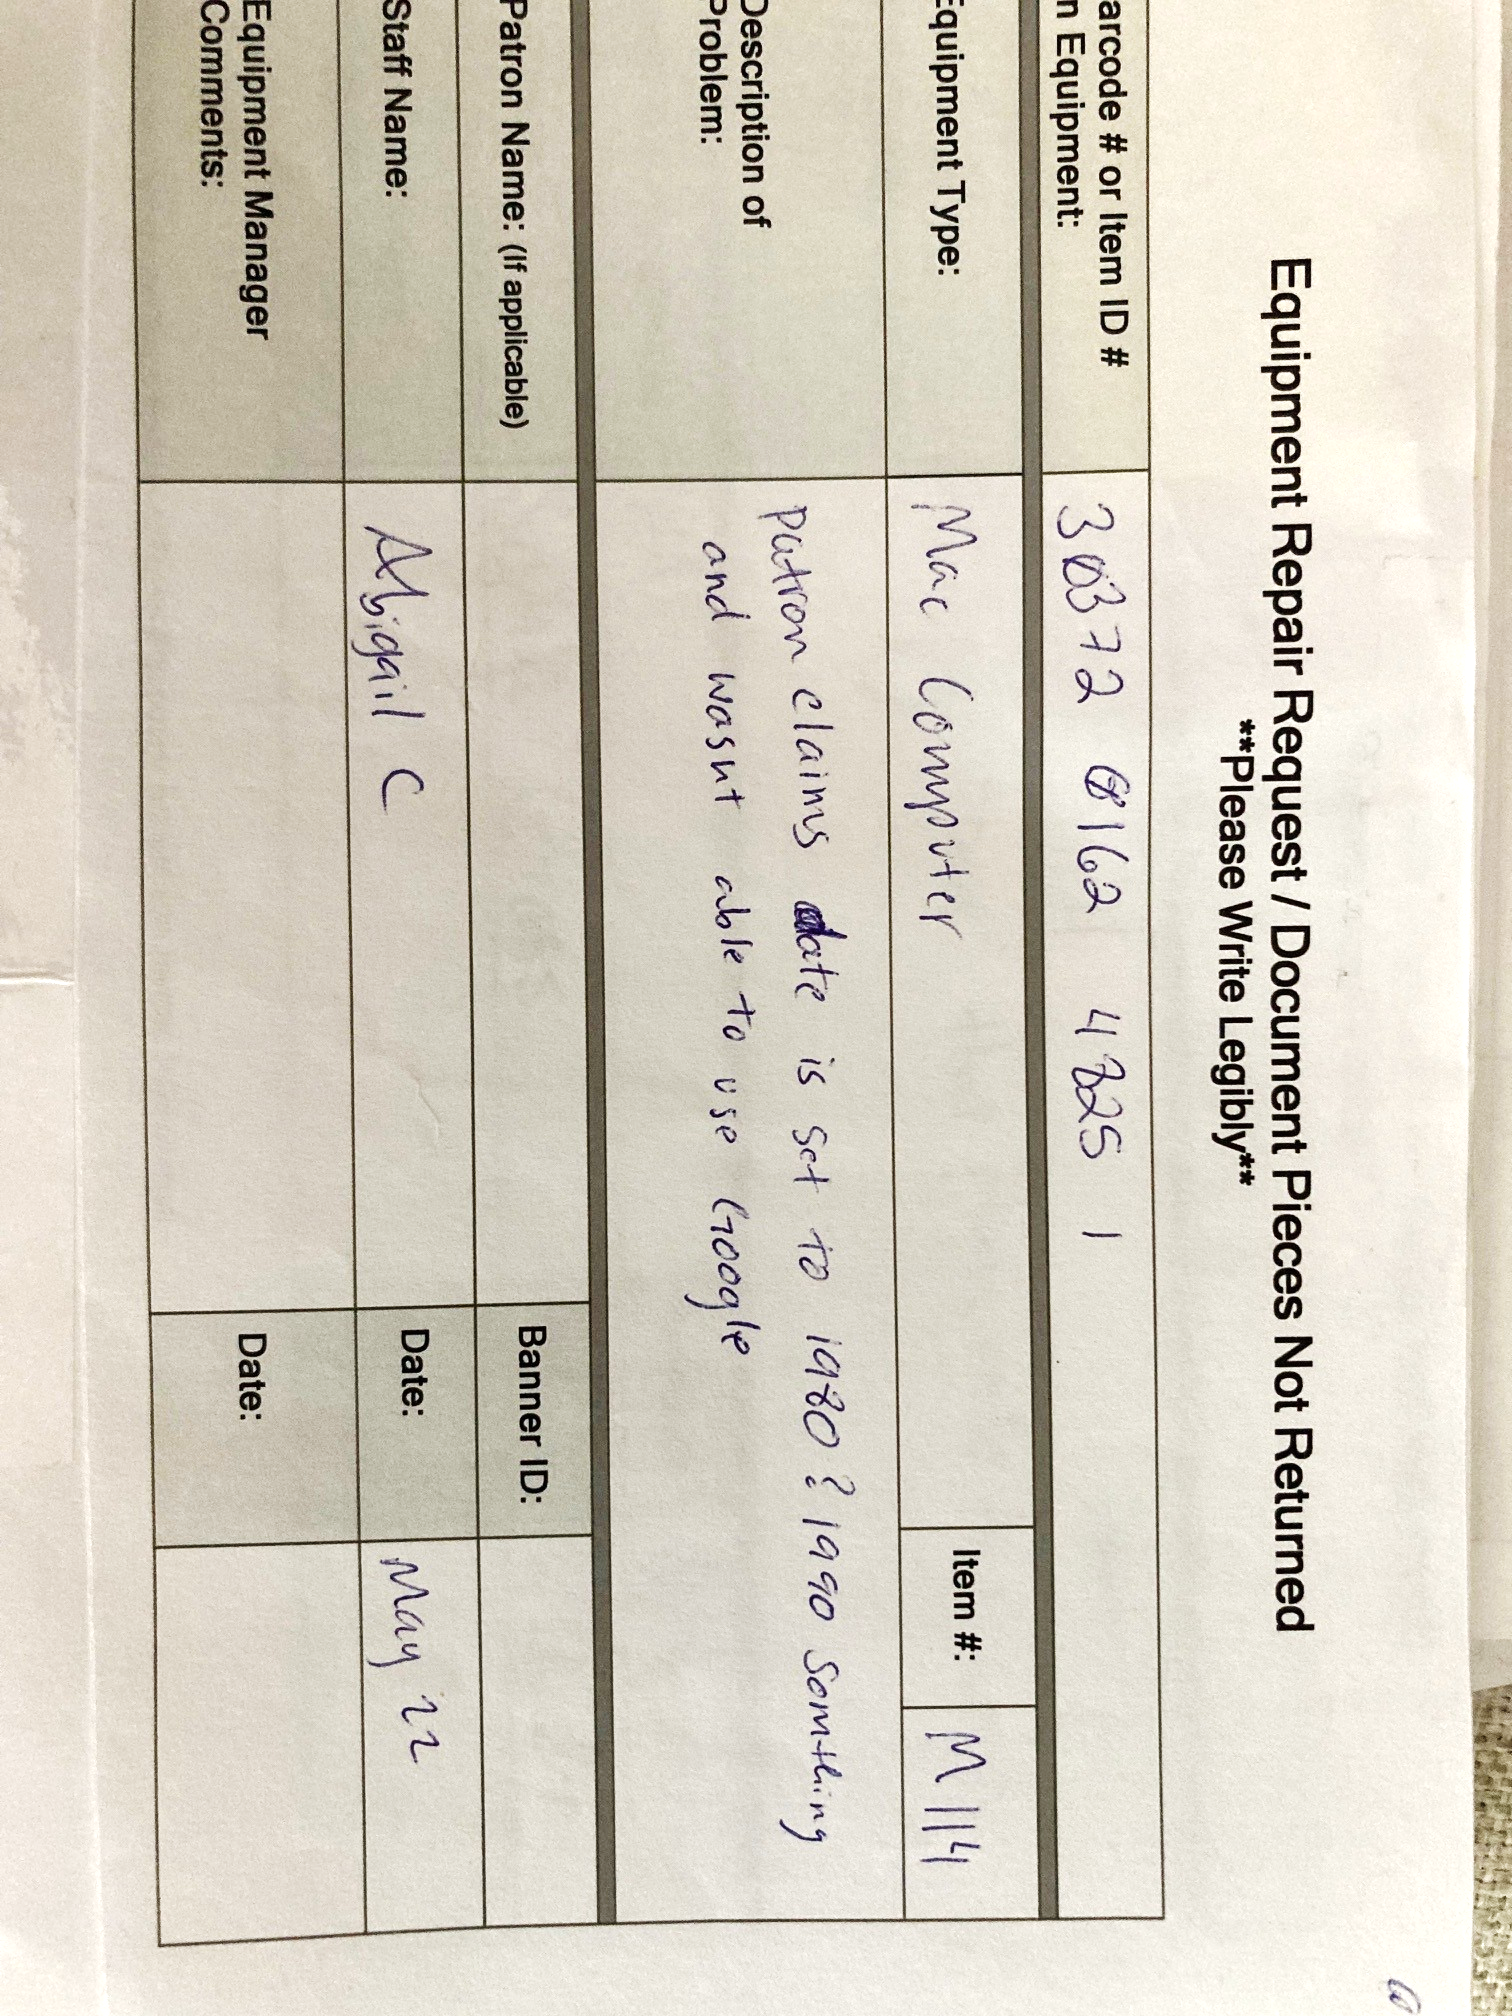 Equipment Repair Request / Document Pieces Not Returned
**Please Write Legibly**
arcode # or Item ID #
n Equipment:
30372 0162 4225 1
Equipment Type:
Mac Computer
Item #:
M114
Description of
Problem:
patron claims date is set to 1980? 1990 somthing
and wasnt able to use Google
Patron Name: (If applicable)
Banner ID:
Staff Name:
Abigail C
Date:
May 22
Equipment Manager
Comments:
Date: